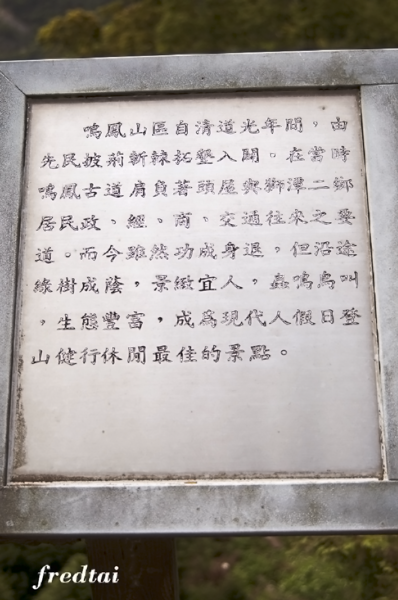 鳴鳳山區自清道光年間，由
先民披荊斬棘拓墾入闢。在當時
鳴鳳古道肩負著頭屋與獅潭二鄉
居民政、經、商、交通往來之要
道。而今雖然功成身退，但沿途
綠樹成蔭，景緻宜人，蟲鳴鳥叫
，生態豐富，成為現代人假日登
山健行休閒最佳的景點。
fredtai